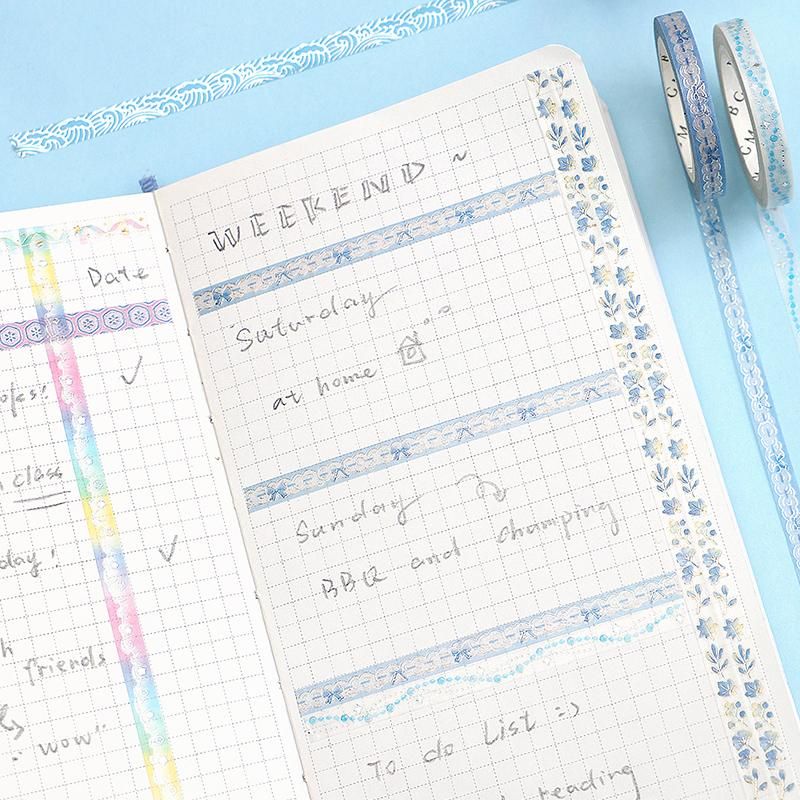 Date
class
friends
"wow"
WEEKEND ~
Saturday
at home
Sunday
BBQ and champing
To do List =)
reading